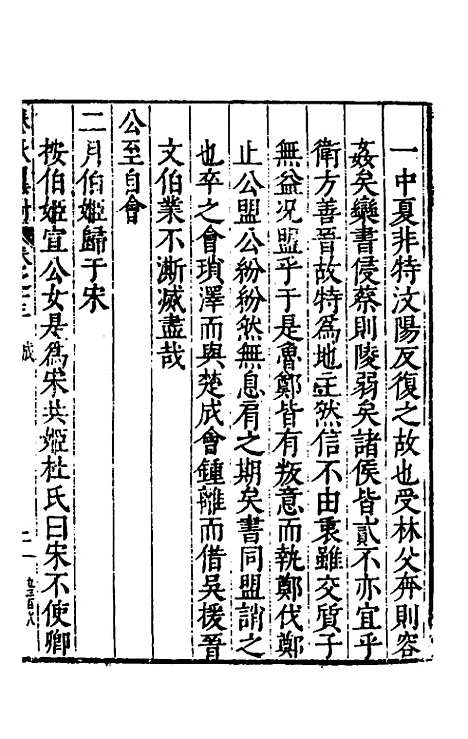 一中夏非特汶陽反復之故也受林父奔則容
姦矣欒書侵蔡則陵弱矣諸侯皆貳不亦宜乎
衛方善晉故特爲地主然信不由衷雖交質子
無益况盟乎于是魯鄭皆有叛意而執鄭伐鄭
止公盟公紛紛然無息肩之期矣書同盟誚之
也卒之會瑣澤而與楚成會鍾離而借吳援晉
文伯業不漸滅盡哉
公至自會
二月伯姬歸于宋
按伯姬宣公女是爲宋共姬杜氏曰宋不使卿